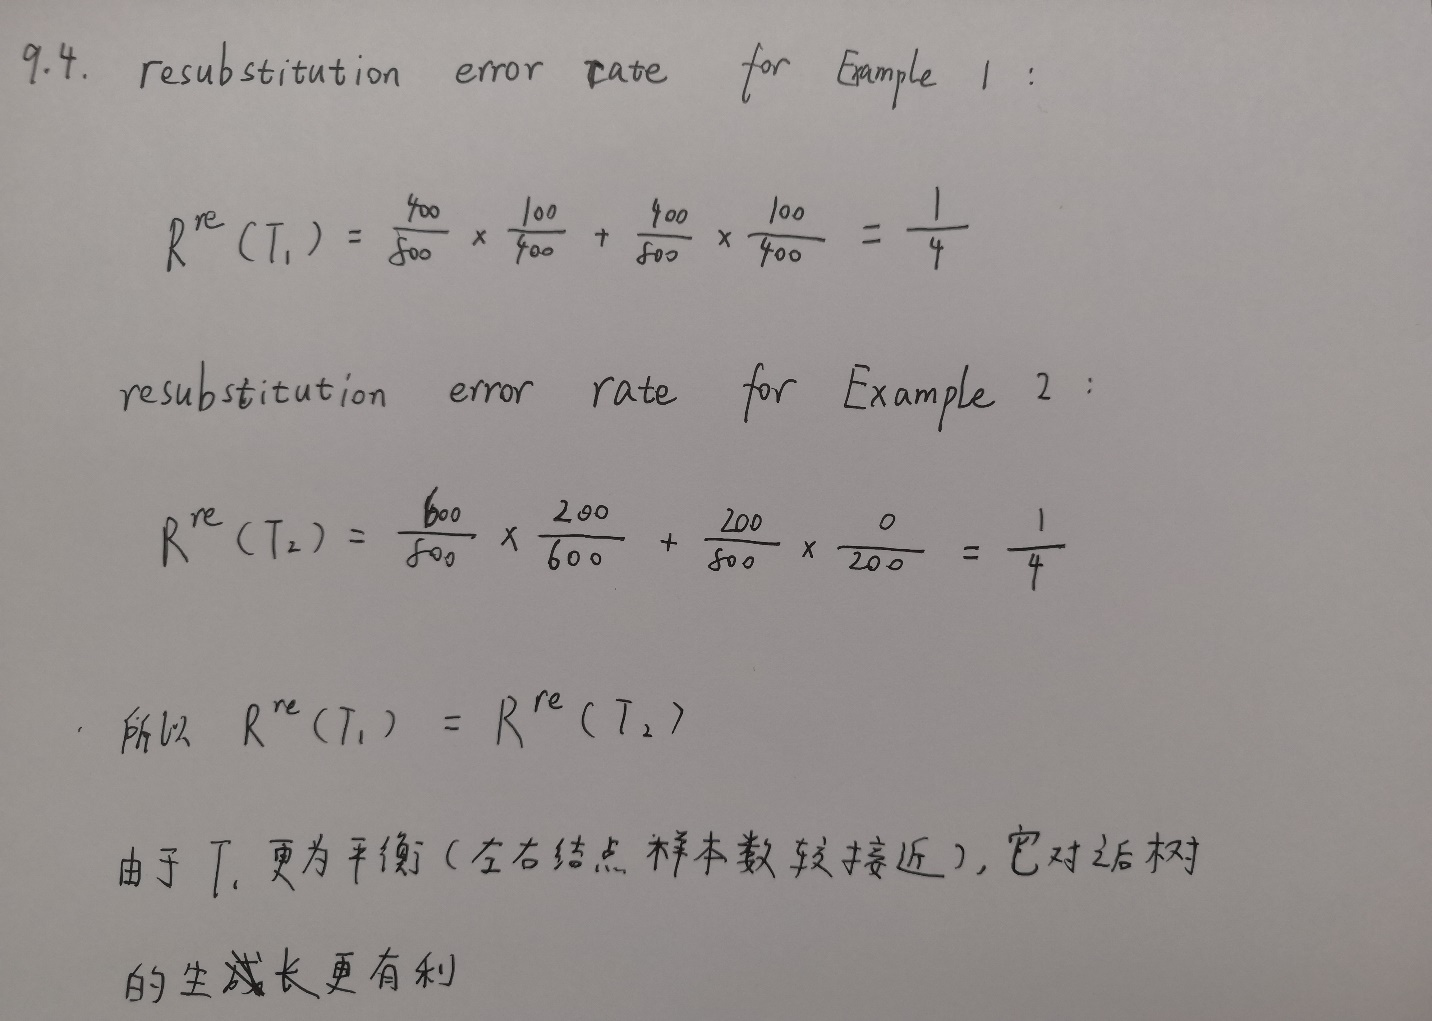 9.4. resubstitution error rate for Example 1 :
R^re (T₁) = 400/800 × 100/400 + 400/800 × 100/400 = 1/4
resubstitution error rate for Example 2 :
R^re (T₂) = 600/800 × 200/600 + 200/800 × 0/200 = 1/4
所以 R^re (T₁) = R^re (T₂)
由于 T₁ 更为平衡(左右结点样本数较接近), 它对之后树
的生长更有利